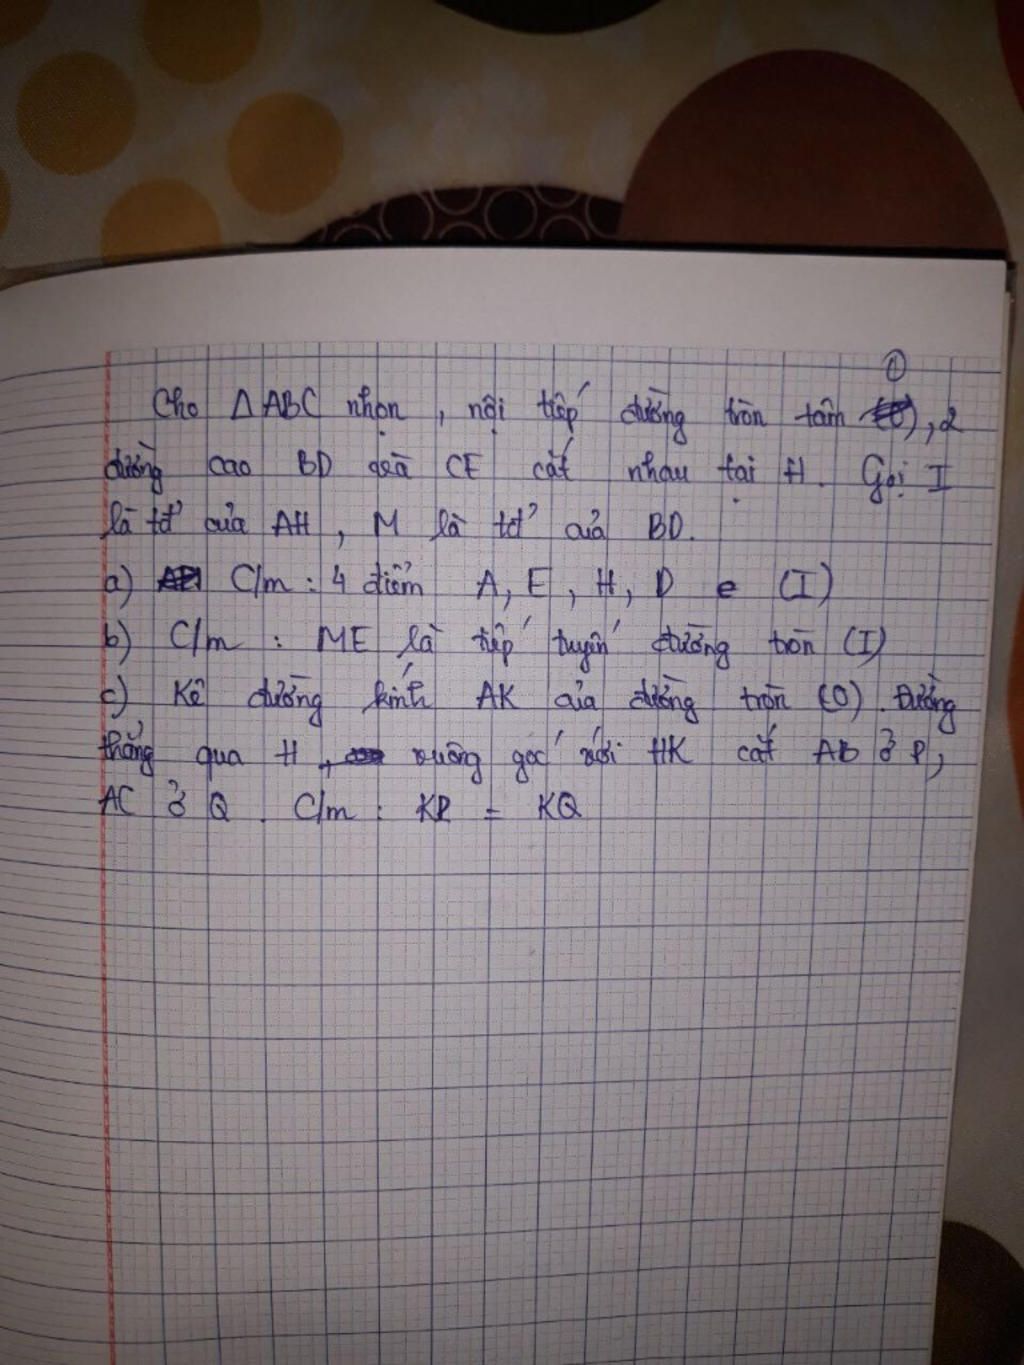 ①
Cho ΔABC nhọn, nội tiếp đường tròn tâm , 2
đường cao BD và CE cắt nhau tại H. Gọi I
là tđ' của AH, M là tđ' của BD.
a) C/m : 4 điểm A, E, H, D e (I)
b) C/m : ME là tiếp tuyến đường tròn (I)
c) Kẻ đường kính AK của đường tròn (O). Đường
thẳng qua H, vuông góc với HK cắt AB ở P,
AC ở Q. C/m : KP = KQ